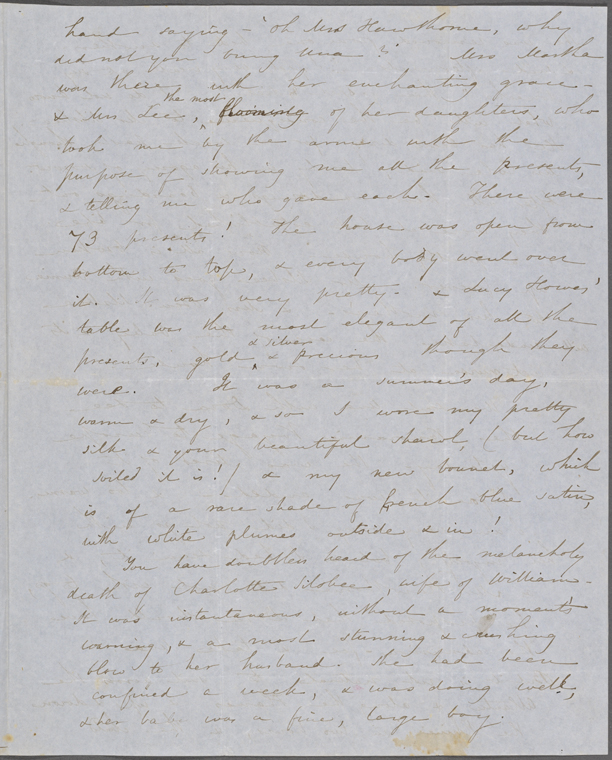 hand saying - "Oh Mrs Hawthorne, why
did not you bring Una?" Mrs Martha
was there with her enchanting grace -
& Mrs Lee, the most of her daughters, who
took me by the arm with the
purpose of showing me all the presents,
& telling me who gave each. There were
73 presents! The house was open from
bottom to top, & every body went over
it. It was very pretty - & Lucy Howes'
table was the most elegant of all the
presents, gold & silver & precious though they
were. It was a summer's day,
warm & dry, & so I wore my pretty
silk & your beautiful shawl, (but how
soiled it is!) & my new bonnet, which
is of a rare shade of french blue satin,
with white plumes outside & in!
You have doubtless heard of the melancholy
death of Charlotte Silsbee, wife of William -
It was instantaneous, without a moment's
warning, & a most stunning & crushing
blow to her husband. She had been
confined a week, & was doing well,
& her babe was a fine, large boy.